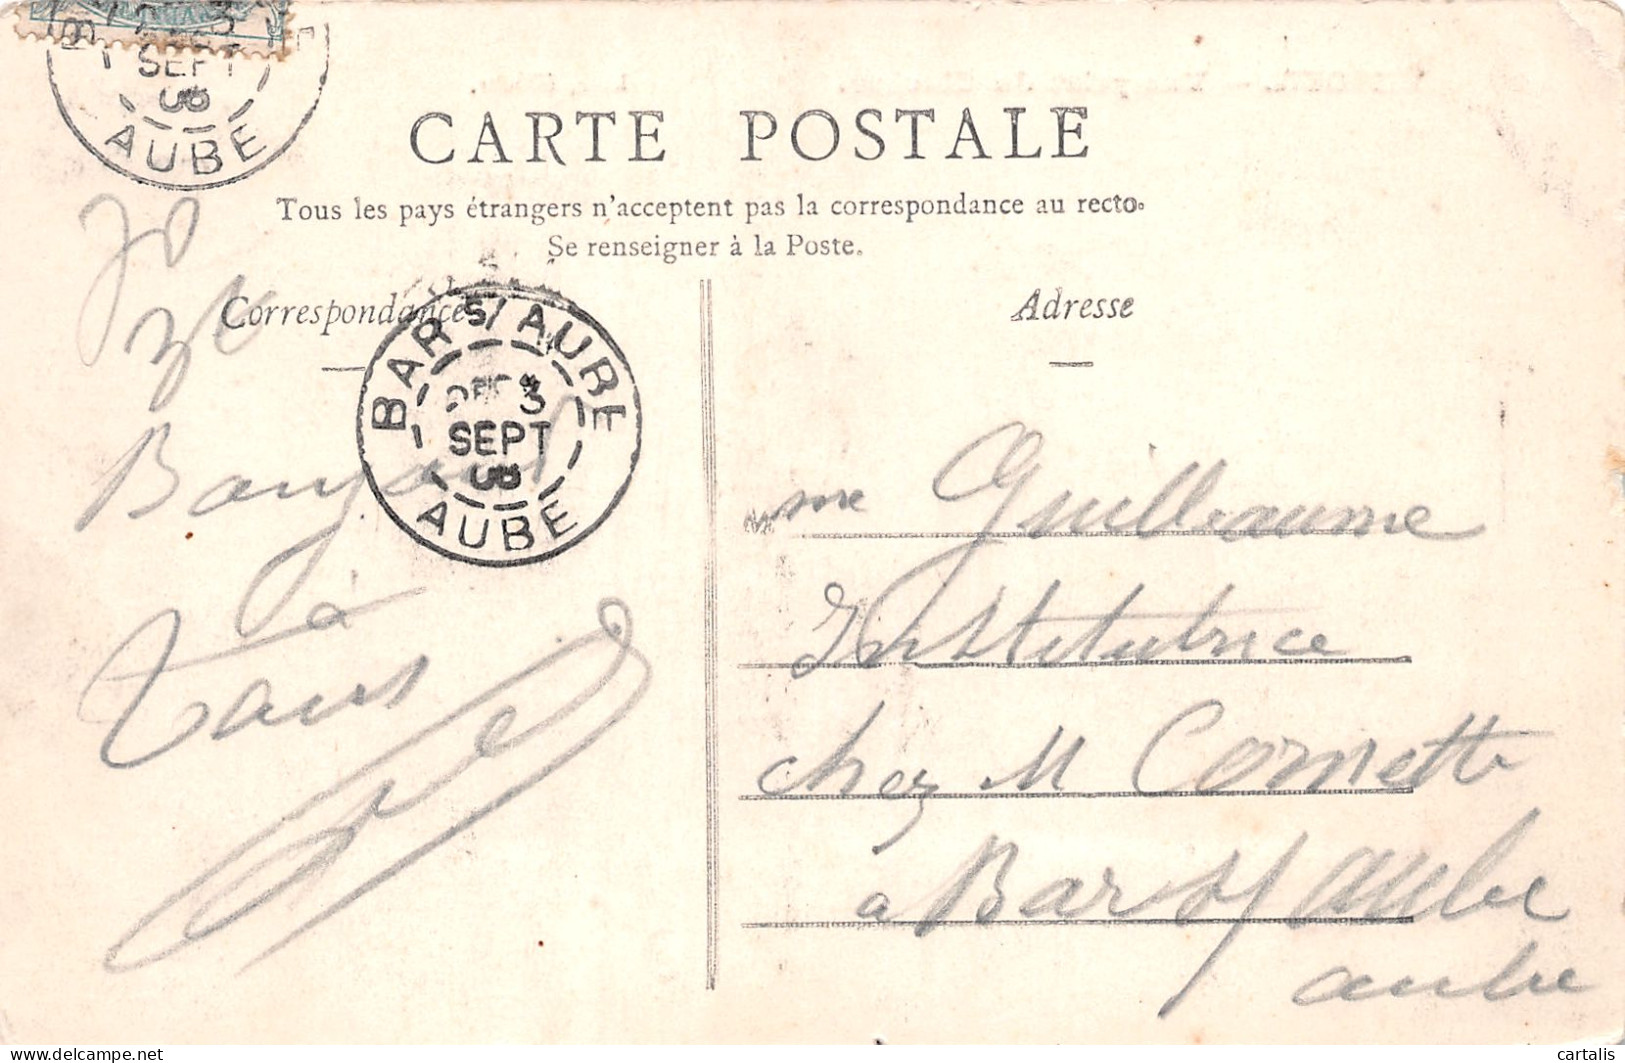 SEPT
AUBE
CARTE POSTALE
Tous les pays étrangers n'acceptent pas la correspondance au recto.
Se renseigner à la Poste.
Correspondance
BAR S/ AUBE
3
SEPT
AUBE
Adresse
à
me Guillaume
Institutrice
chez M Cornette
à Bar s/ aube
aube
delcampe.net
cartalis